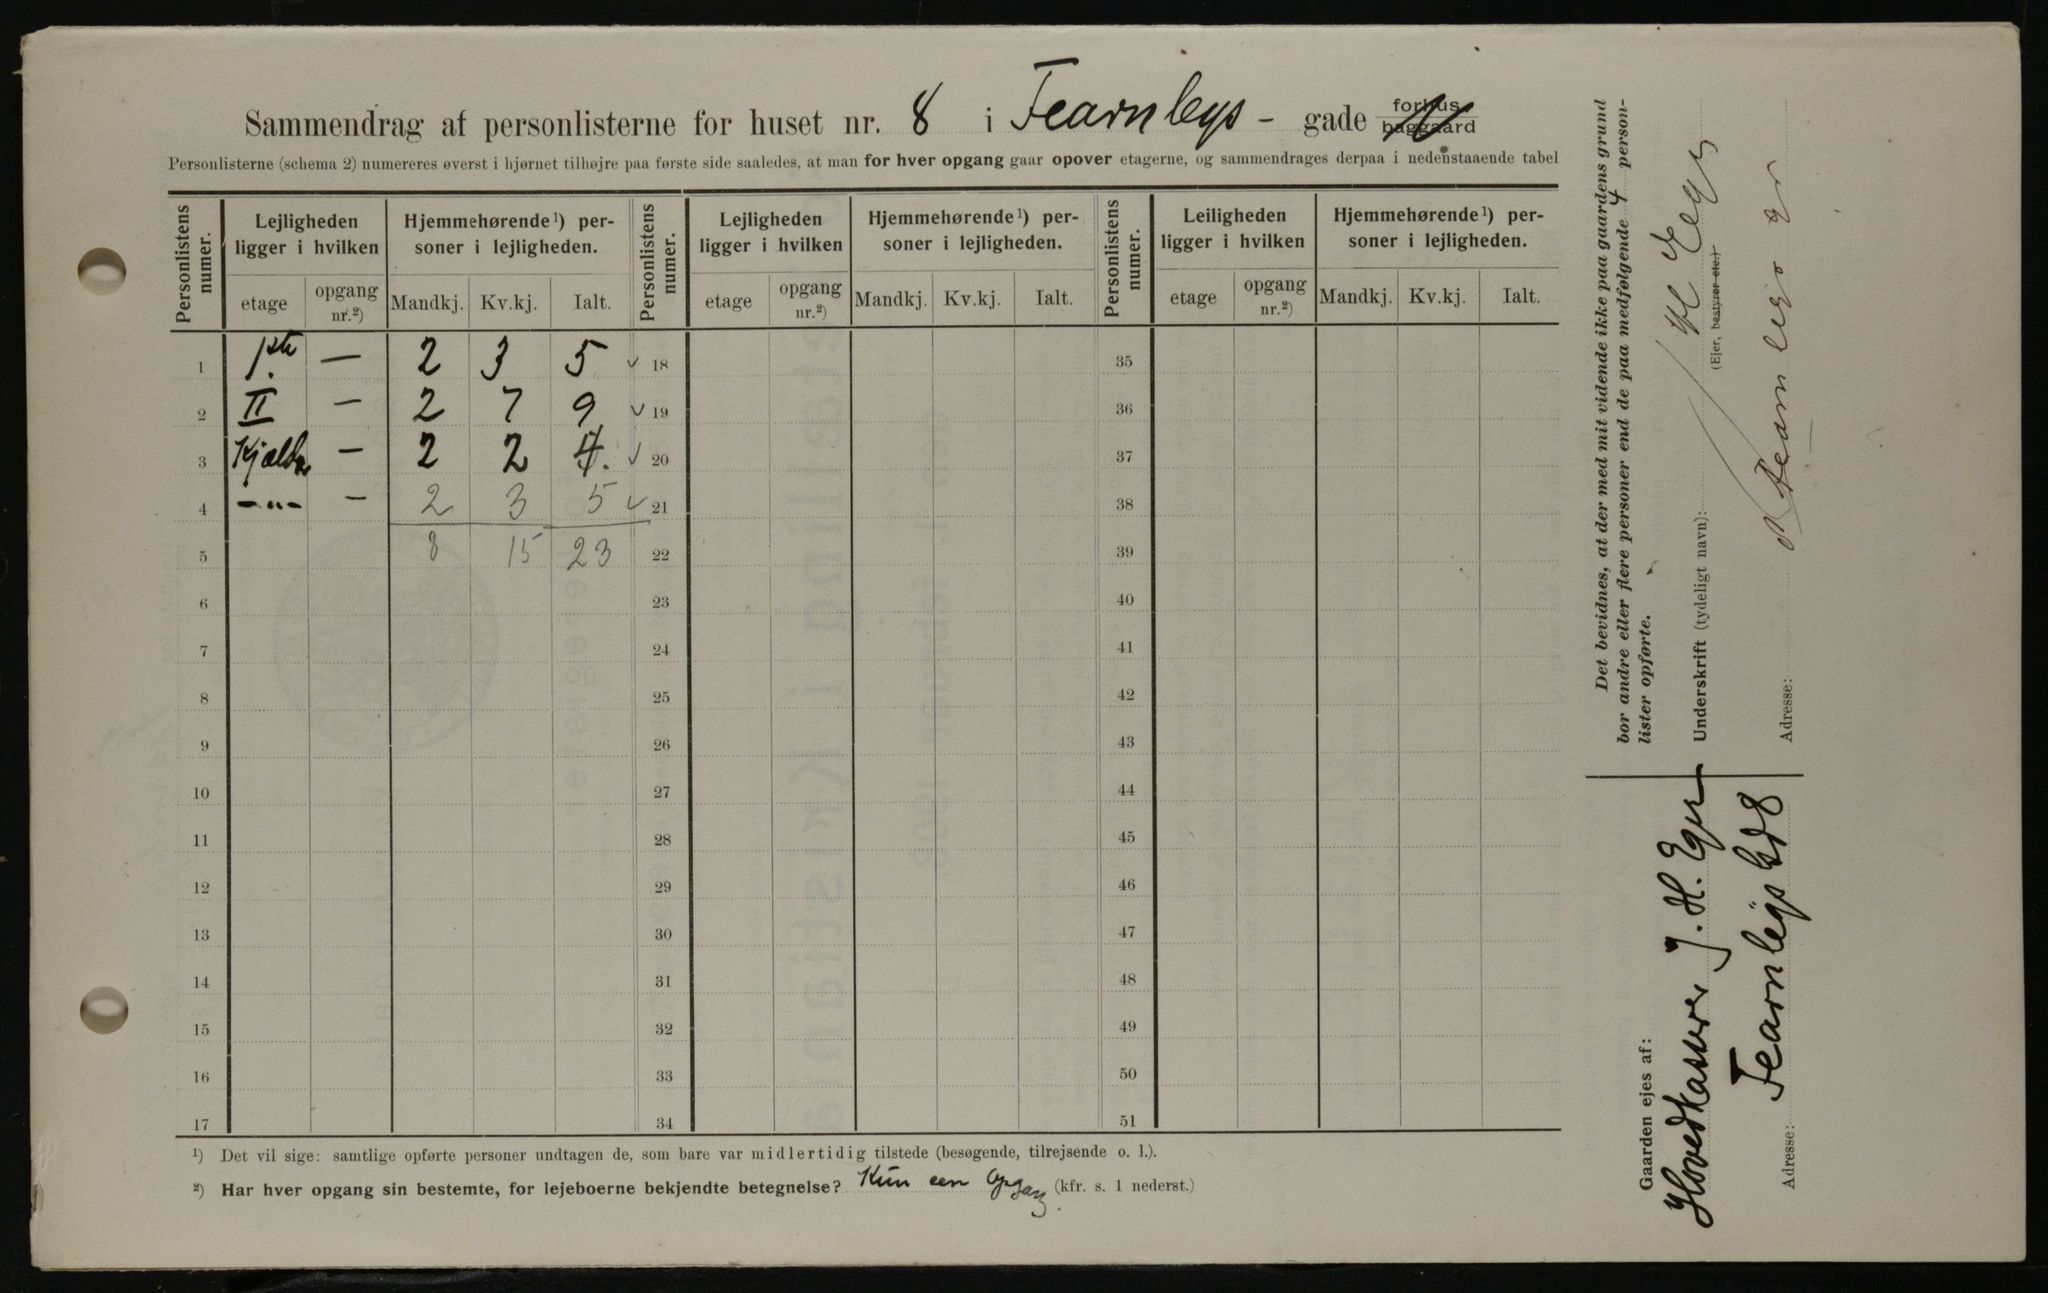 Sammendrag af personlisterne for huset nr. 8 i Fearnleys- gade forhus baggaard
Personlisterne (schema 2) numereres øverst i hjørnet tilhøjre paa første side saaledes, at man for hver opgang gaar opover etagerne, og sammendrages derpaa i nedenstaaende tabel
Personlistens numer.
Lejligheden ligger i hvilken
Hjemmehørende¹) personer i lejligheden.
etage
opgang nr.²)
Mandkj.
Kv.kj.
Ialt.
Personlistens numer.
Lejligheden ligger i hvilken
Hjemmehørende¹) personer i lejligheden.
etage
opgang nr.²)
Mandkj.
Kv.kj.
Ialt.
Personlistens numer.
Leiligheden ligger i hvilken
Hjemmehørende¹) personer i lejligheden.
etage
opgang nr.²)
Mandkj.
Kv.kj.
Ialt.
1 1ste. — 2 3 5 ✓ 18 35
2 II — 2 7 9 ✓ 19 36
3 Kjælder — 2 2 4. ✓ 20 37
4 -"- — 2 3 5 ✓ 21 38
5 8 15 23 22 39
6 23 40
7 24 41
8 25 42
9 26 43
10 27 44
11 28 45
12 29 46
13 30 47
14 31 48
15 32 49
16 33 50
17 34 51
¹) Det vil sige: samtlige opførte personer undtagen de, som bare var midlertidig tilstede (besøgende, tilrejsende o. l.).
²) Har hver opgang sin bestemte, for lejeboerne bekjendte betegnelse? Kun een Opgang (kfr. s. 1 nederst.)
Det bevidnes, at der med mit vidende ikke paa gaardens grund
bor andre eller flere personer end de paa medfølgende 4 person-
lister opførte.
Underskrift (tydeligt navn): H Eger
(Ejer, bestyrer etc.)
Adresse:
Gaarden ejes af:
Hovedkasserer J. H. Eger
Adresse: Fearnleys Gd 8